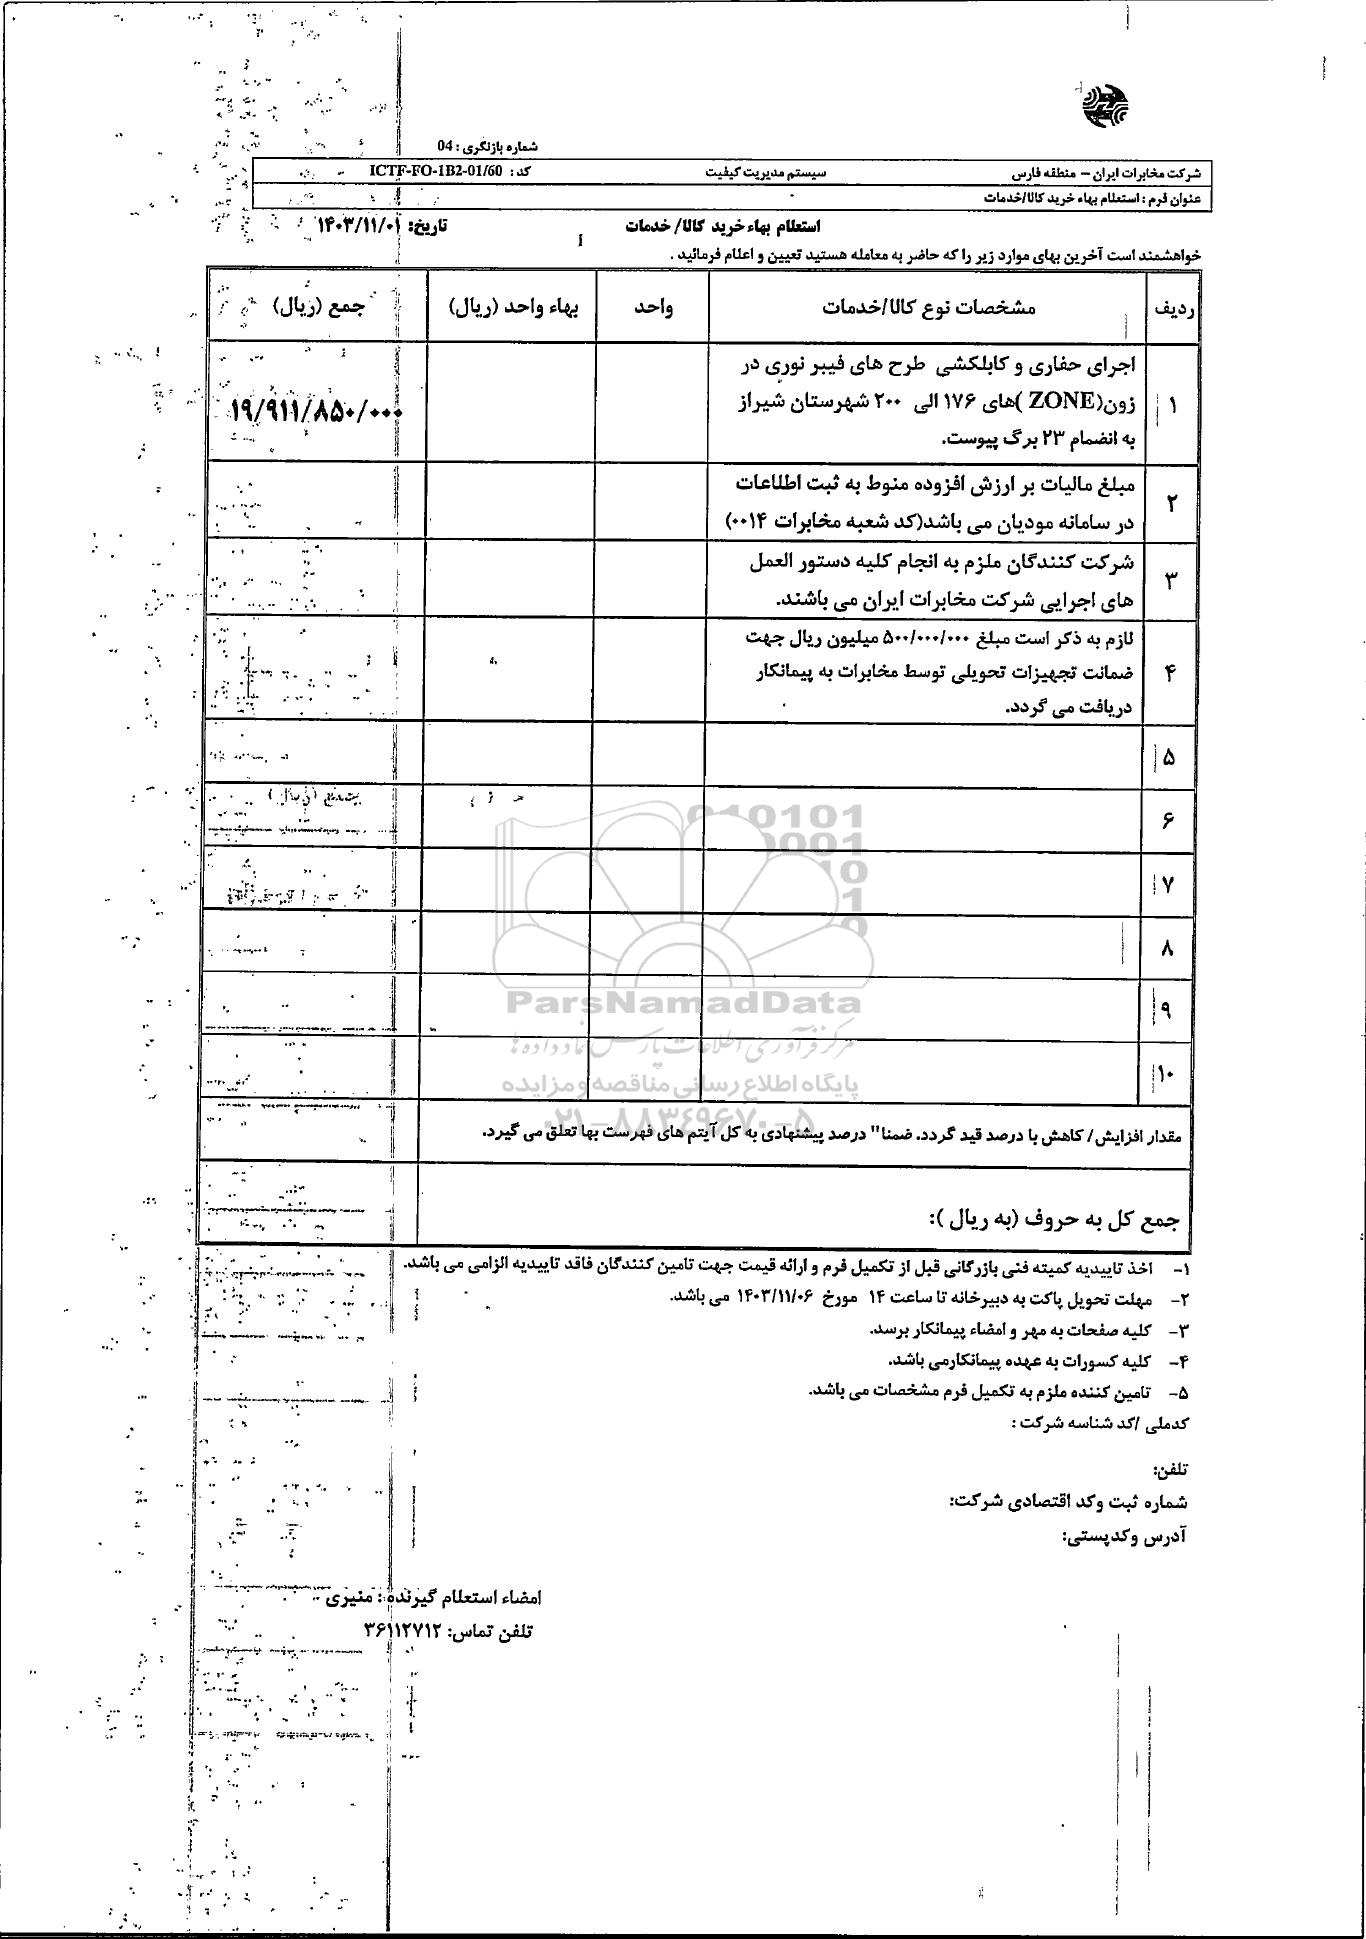 شماره بازنگری : 04
شرکت مخابرات ایران – منطقه فارس سیستم مدیریت کیفیت کد : ICTF-FO-1B2-01/60
عنوان فرم : استعلام بهاء خرید کالا/خدمات
استعلام بهاء خرید کالا/ خدمات تاریخ: ۱۴۰۳/۱۱/۰۱
خواهشمند است آخرین بهای موارد زیر را که حاضر به معامله هستید تعیین و اعلام فرمائید .
ردیف مشخصات نوع کالا/خدمات واحد بهاء واحد (ریال) جمع (ریال)
اجرای حفاری و کابلکشی طرح های فیبر نوری در
۱ زون(ZONE )های ۱۷۶ الی ۲۰۰ شهرستان شیراز ۱۹/۹۱۱/۸۵۰/۰۰۰
به انضمام ۲۳ برگ پیوست.
مبلغ مالیات بر ارزش افزوده منوط به ثبت اطلاعات
۲
در سامانه مودیان می باشد(کد شعبه مخابرات ۰۰۱۴)
شرکت کنندگان ملزم به انجام کلیه دستور العمل
۳
های اجرایی شرکت مخابرات ایران می باشند.
لازم به ذکر است مبلغ ۵۰۰/۰۰۰/۰۰۰ میلیون ریال جهت
۴ ضمانت تجهیزات تحویلی توسط مخابرات به پیمانکار
دریافت می گردد.
۵
۶
۷
۸
۹
۱۰
010101
0001
10
1
0
ParsNamadData
مرکز فرآوری اطلاعات پارس نماد داده ها
پایگاه اطلاع رسانی مناقصه و مزایده
۰۲۱-۸۸۳۴۹۶۷۰-۵
مقدار افزایش/ کاهش با درصد قید گردد. ضمنا" درصد پیشنهادی به کل آیتم های فهرست بها تعلق می گیرد.
جمع کل به حروف (به ریال ):
۱- اخذ تاییدیه کمیته فنی بازرگانی قبل از تکمیل فرم و ارائه قیمت جهت تامین کنندگان فاقد تاییدیه الزامی می باشد.
۲- مهلت تحویل پاکت به دبیرخانه تا ساعت ۱۴ مورخ ۱۴۰۳/۱۱/۰۶ می باشد.
۳- کلیه صفحات به مهر و امضاء پیمانکار برسد.
۴- کلیه کسورات به عهده پیمانکارمی باشد.
۵- تامین کننده ملزم به تکمیل فرم مشخصات می باشد.
کدملی /کد شناسه شرکت :
تلفن:
شماره ثبت وکد اقتصادی شرکت:
آدرس وکدپستی:
امضاء استعلام گیرنده : منیری
تلفن تماس: ۳۶۱۱۲۷۱۲